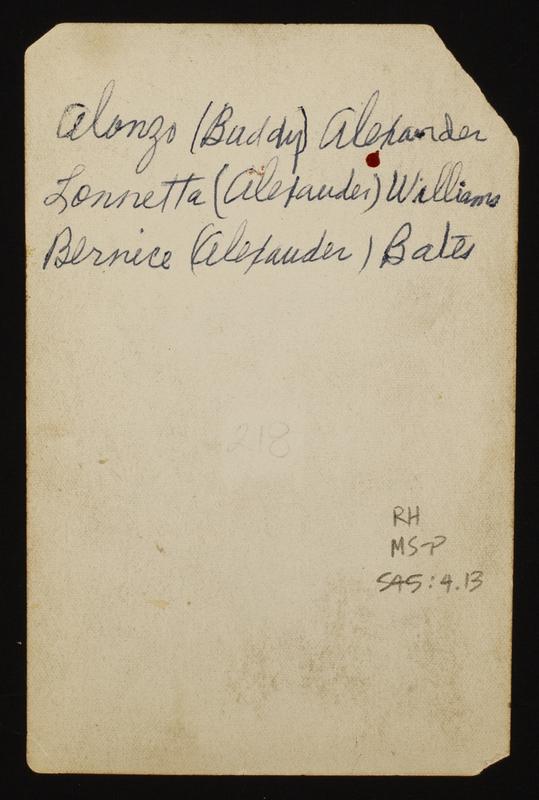 Alonzo (Buddy) Alexander
Lonnetta (Alexander) Williams
Bernice (Alexander) Bates
218
RH
MS-P
545:4.13